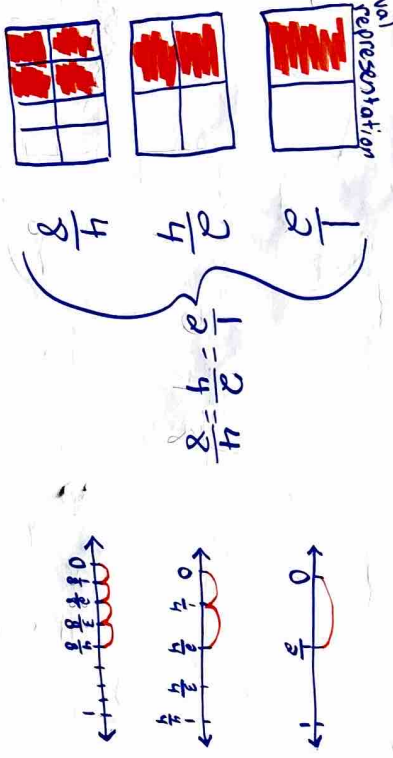 ual
representation
1/2
2/4
4/8
1/2 = 2/4 = 4/8
0 1/2 1
0 1/4 2/4 3/4 4/4
0 1/8 2/8 3/8 4/8 1